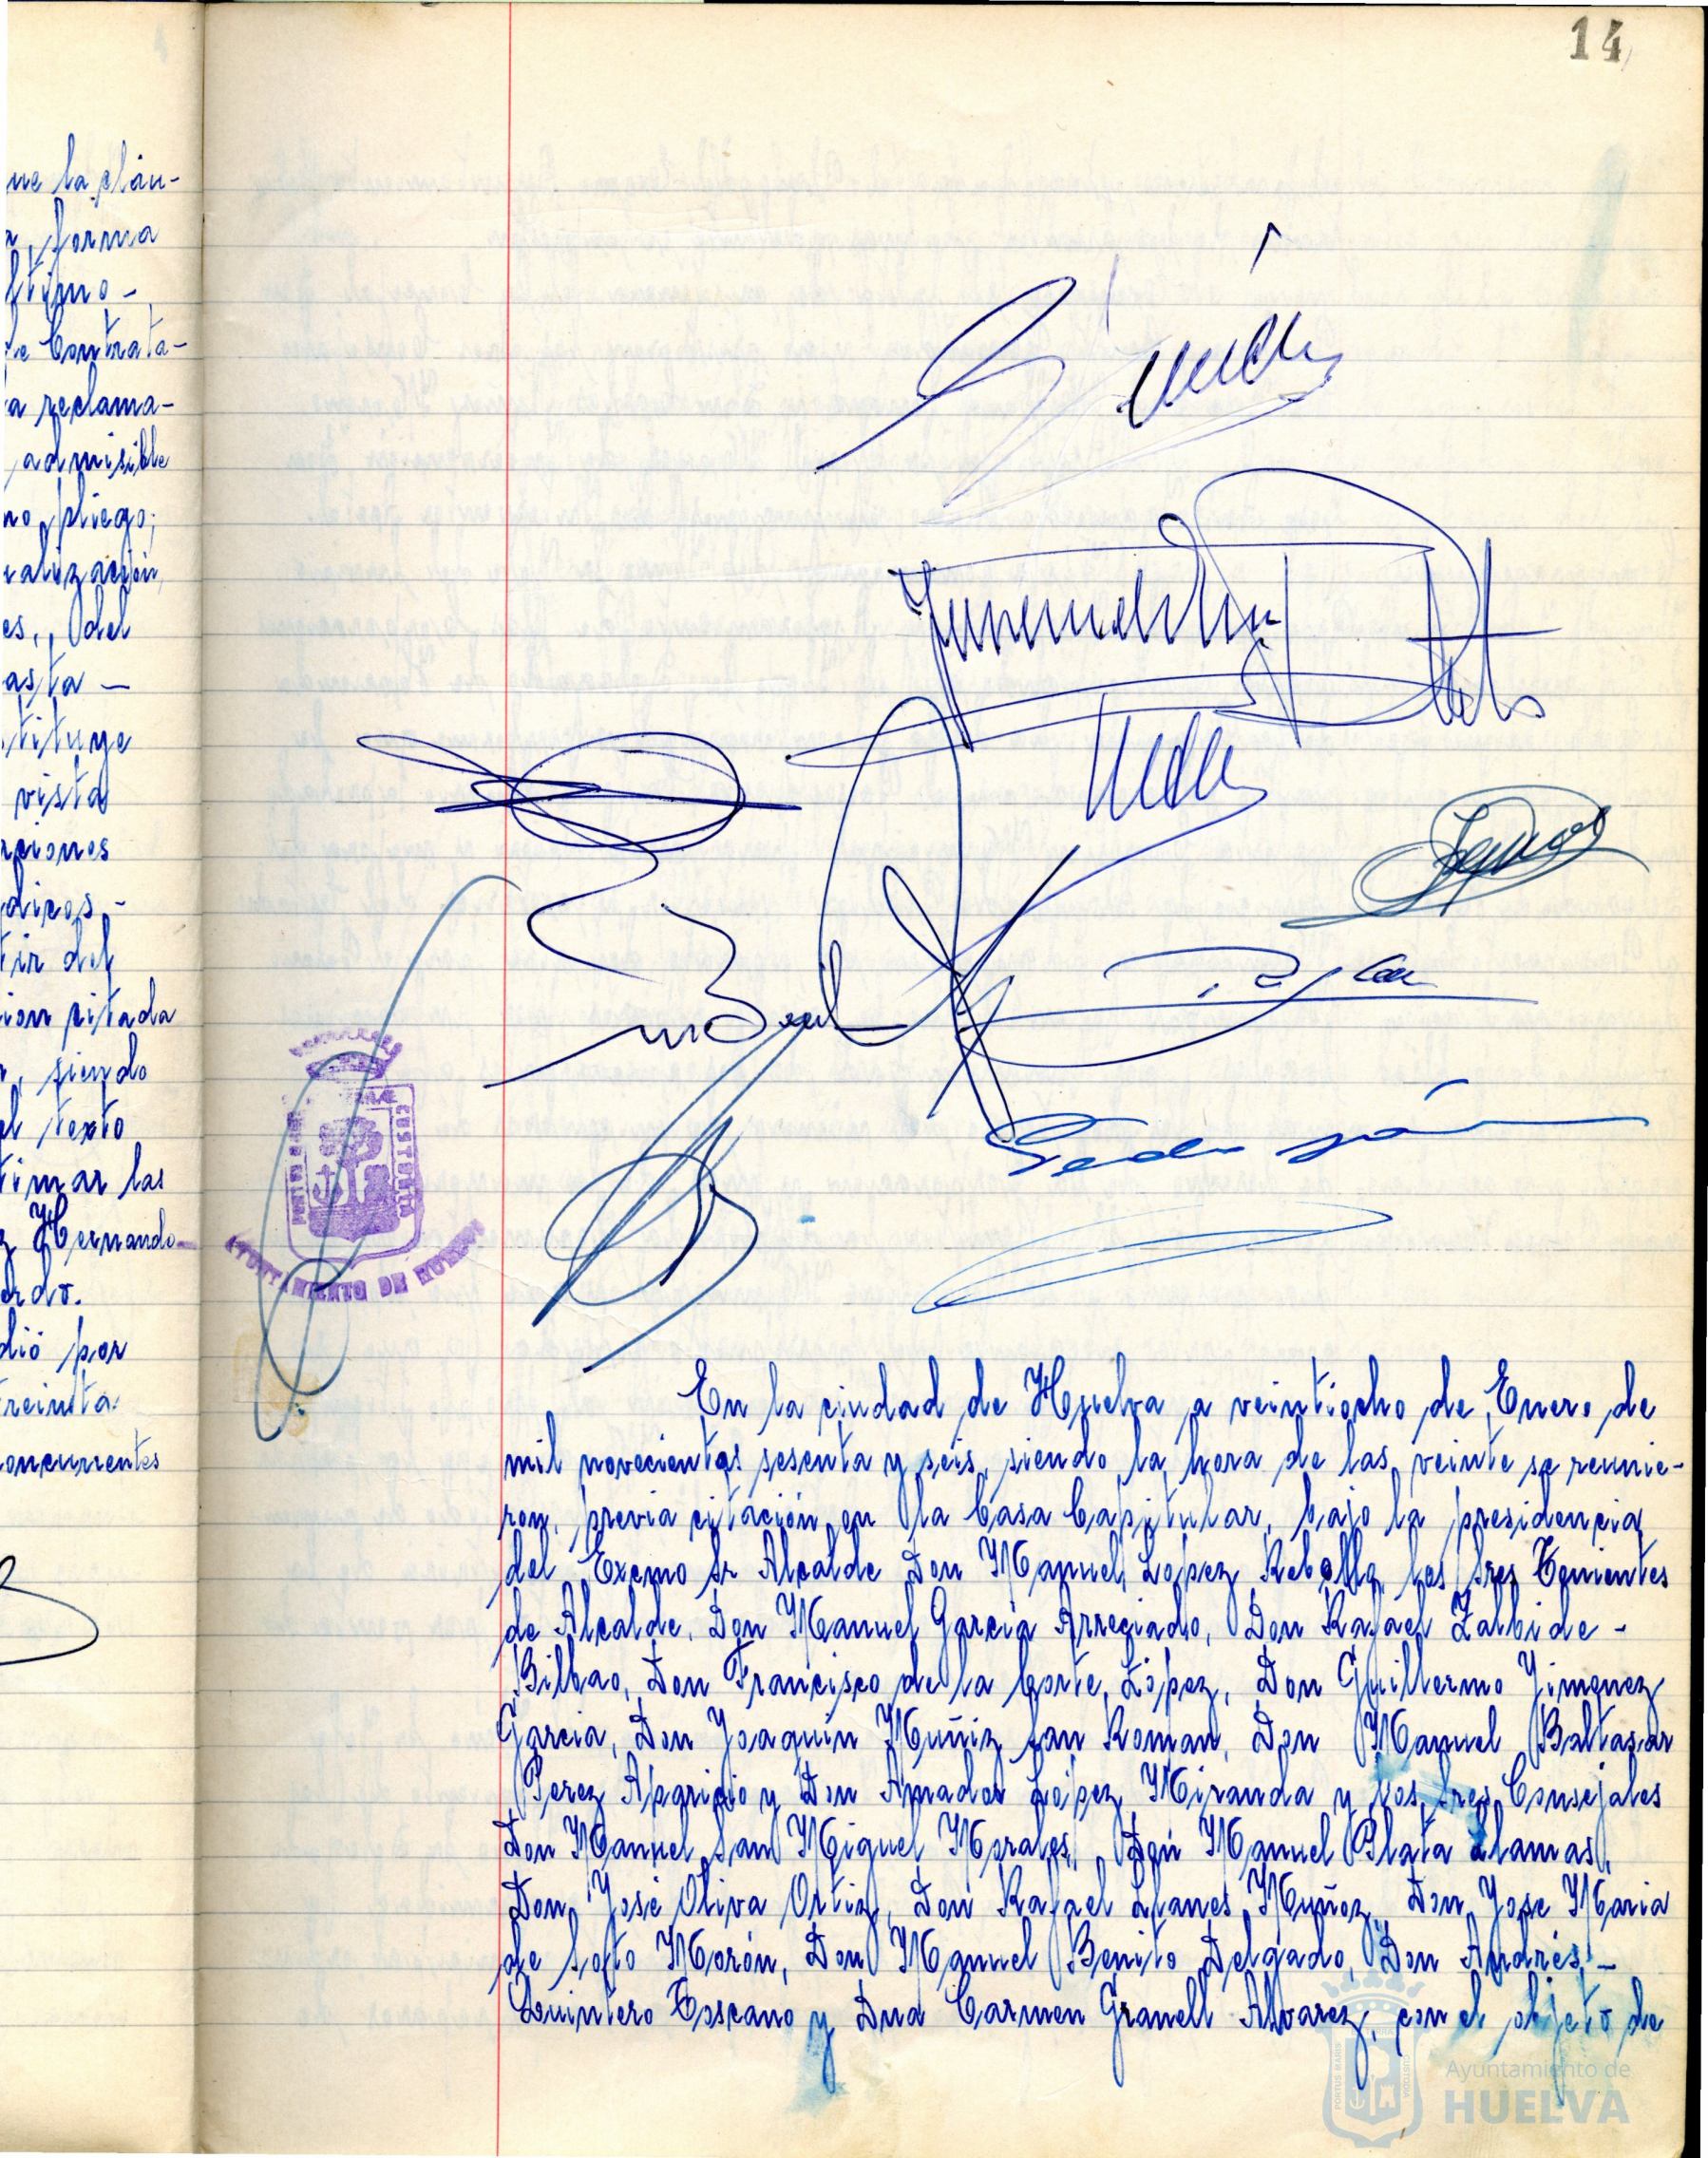 14
ne la cláu-
, forma
ltimo -
e Contrata-
a reclama-
admisible
mo pliego;
ealización,
es, del
asta -
stituye
vista
aciones
dicos -
tir del
ion citada
, siendo
el texto
timar las
z Hernando
erdo.
dió por
treinta
oncurrentes
PORTUS MARIS
CUSTODIA
AYUNTAMIENTO DE HUELVA
En la ciudad de Huelva a veintiocho de Enero de
mil novecientos sesenta y seis, siendo la hora de las veinte se reunie-
ron, previa citación en la Casa Capitular, bajo la presidencia
del Excmo Sr Alcalde Don Manuel Lopez Rebollo, los Sres Tenientes
de Alcalde, Don Manuel Garcia Arreciado, Don Rafael Zalbide -
Bilbao, Don Francisco de la Corte López, Don Guillermo Jimenez
Garcia, Don Joaquin Muñiz San Roman, Don Manuel Baltasar
Perez Aparicio y Don Amador López Miranda y los Sres Consejales
Don Manuel San Miguel Morales, Don Manuel Plata Llamas,
Don José Oliva Ortiz, Don Rafael Llanes Muñoz, Don Jose Maria
de Soto Morón, Don Manuel Benito Delgado, Don Andrés -
Quintero Toscano y Dña Carmen Granell Alvarez, con el objeto de
Ayuntamiento de
HUELVA